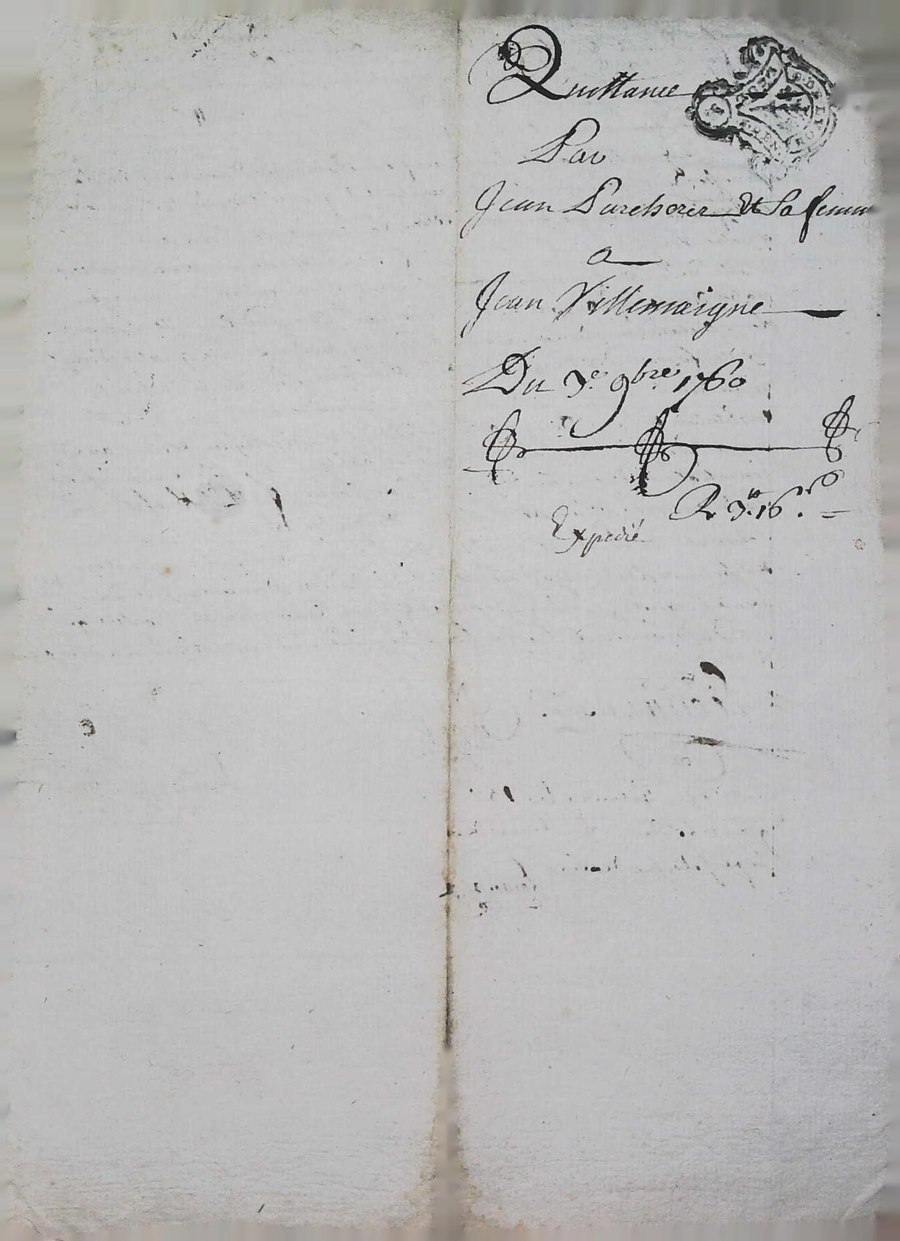 Quittance
Par
Jean Purchorer Et Sa femme
a
Jean Villemaigne
Du 3e 9bre 1760
R 3.tt 16.s
Expedié